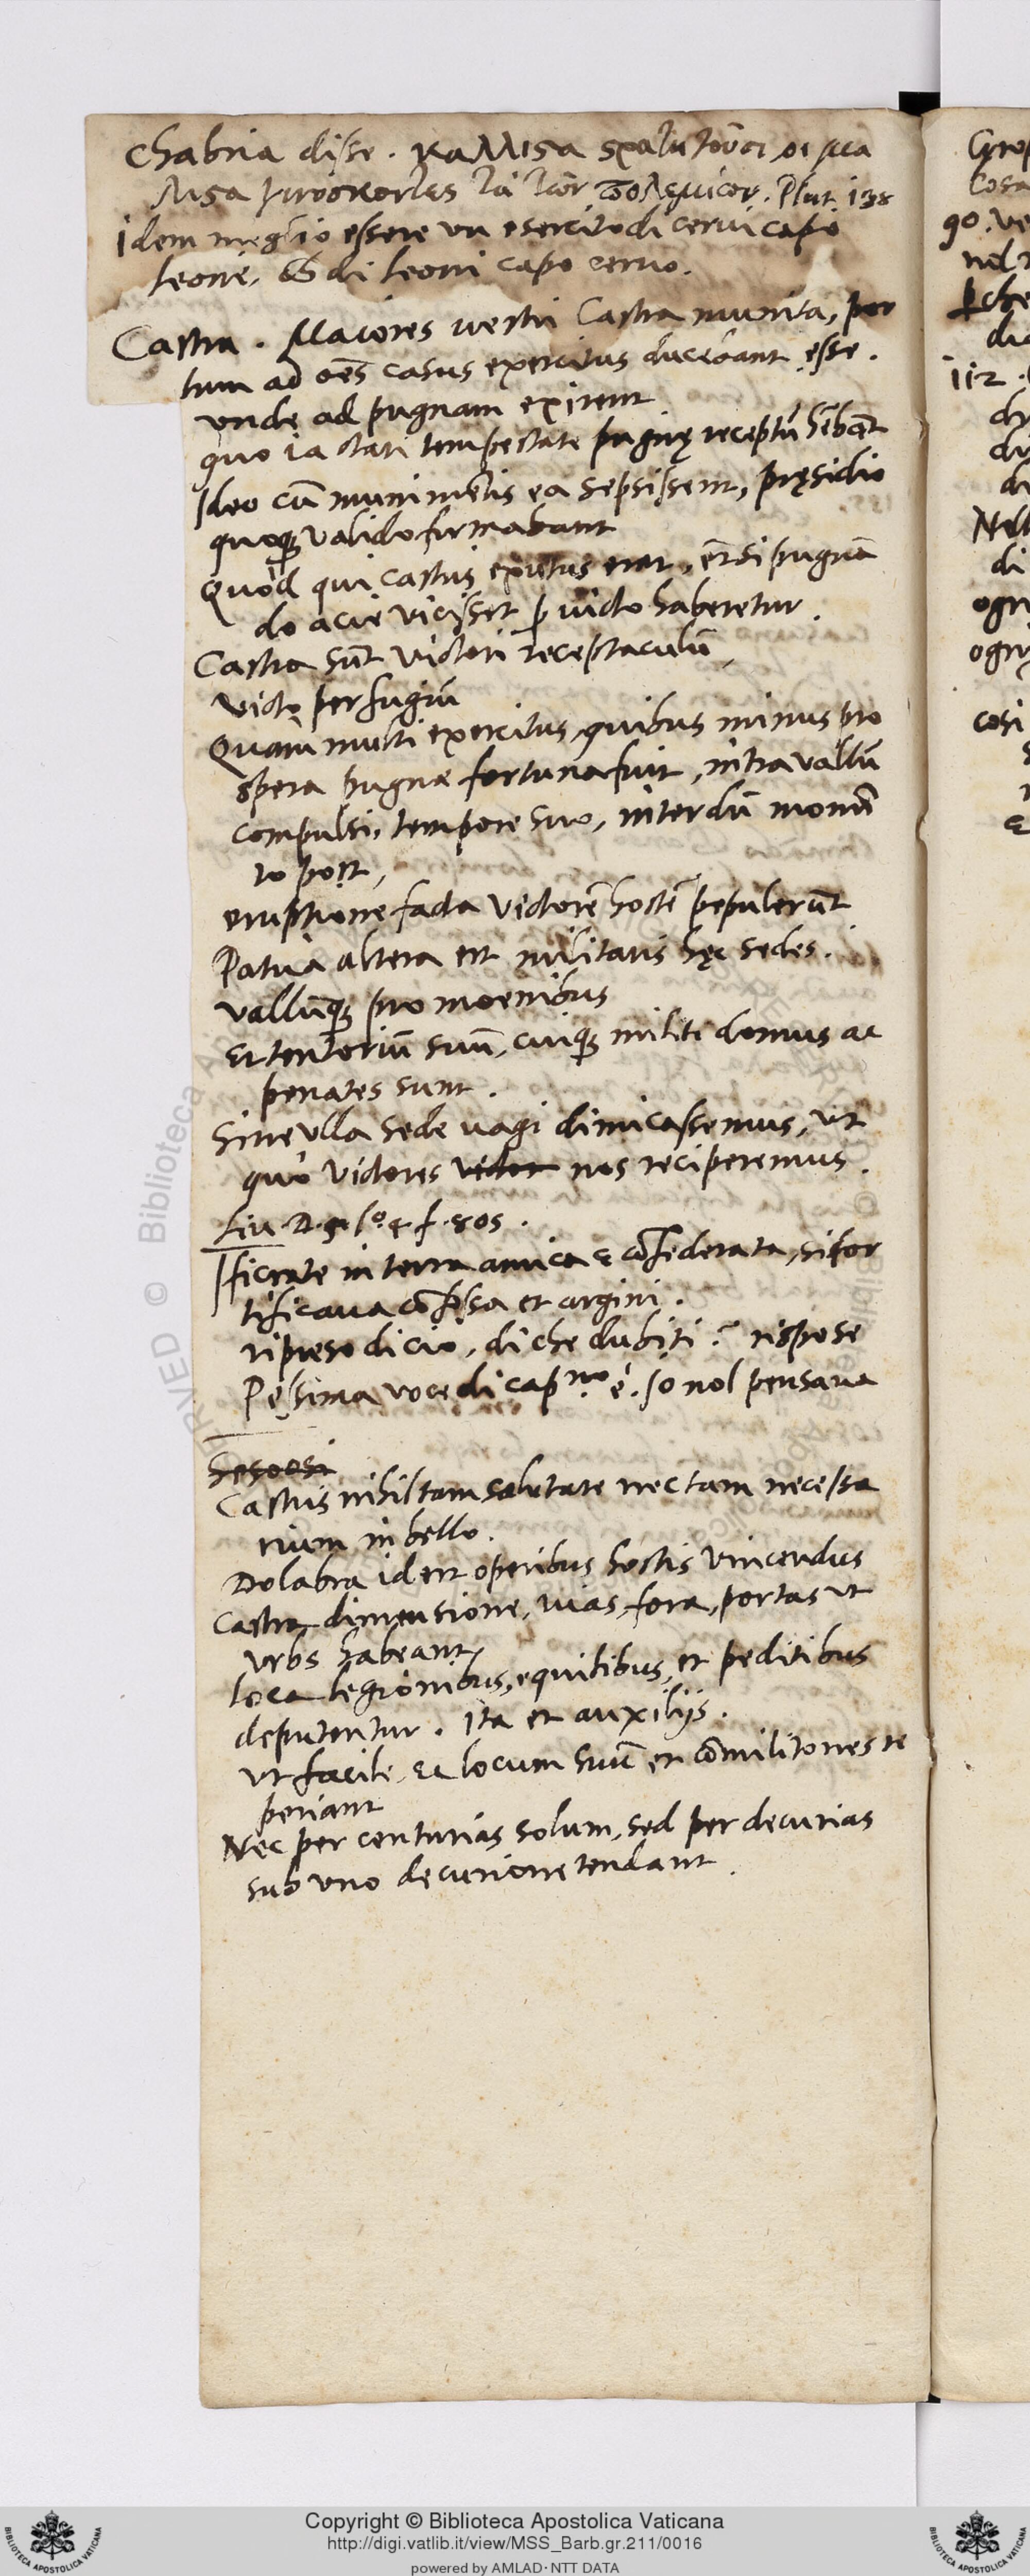 Chabria disse . κάλλιστα στρατηγοῦσι οἱ μά
λιστα γινώσκοντες τὰ τῶν πολεμίων . Plut. 138
idem meglio essere un esercito di cerui capo
leone, che di leoni capo ceruo.
Castra . Maiores uestri Castra munita, por
tum ad oēs casus exercitus ducebant esse .
unde ad pugnam exirent
quo iactati tempestate pugnę receptū hēbant
Ideo cū munimentis ea sepsissent, pręsidio
quoq; valido firmabant
Quod qui castris exutus erat, etsi pugnā
do acie vicisset p victo haberetur.
Castra sūt victori receptaculū,
victo perfugiū
Quam multi exercitus, quibus minus pro
spera pugnæ fortuna fuit, intra vallū
compulsi, tempore suo, interdū momē
to post,
eruptione facta victorē hostē pepulerūt
Patria altera est militaris hęc sedes.
vallūq; pro moenibus
Et tentoriū suū, cuiq; militi domus ac
penates sunt.
Sine ulla sede uagi dimicassemus, ut
quo victores victor nos reciperemus.
Liu. D. 5 lo. 4 f. 805.
Ificrate in terra amica e cōfederata, si for
tificaua cō fossa et argini.
ripreso di cio, di che dubiti? rispose
Pessima voce di cap.no è. io nol pensaua
Castris nihil tam salutare nec tam necessa
rium in bello.
Dolabra id est operibus hostis vincendus
Castra dimensione, uias, fora, portas ut
vrbs habeant,
loca legionibus, equitibus, et peditibus
deputentur. ita et auxilijs.
ut facile, et locum suū et cōmilitones re
periant
Nec per centurias solum, sed per decurias
sub uno decurione tendant.
Copyright © Biblioteca Apostolica Vaticana
http://digi.vatlib.it/view/MSS_Barb.gr.211/0016
powered by AMLAD·NTT DATA